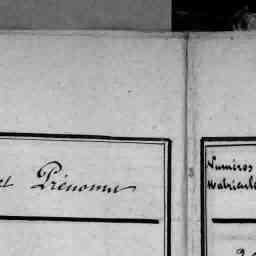 et Prénoms
Numéros
Matricule